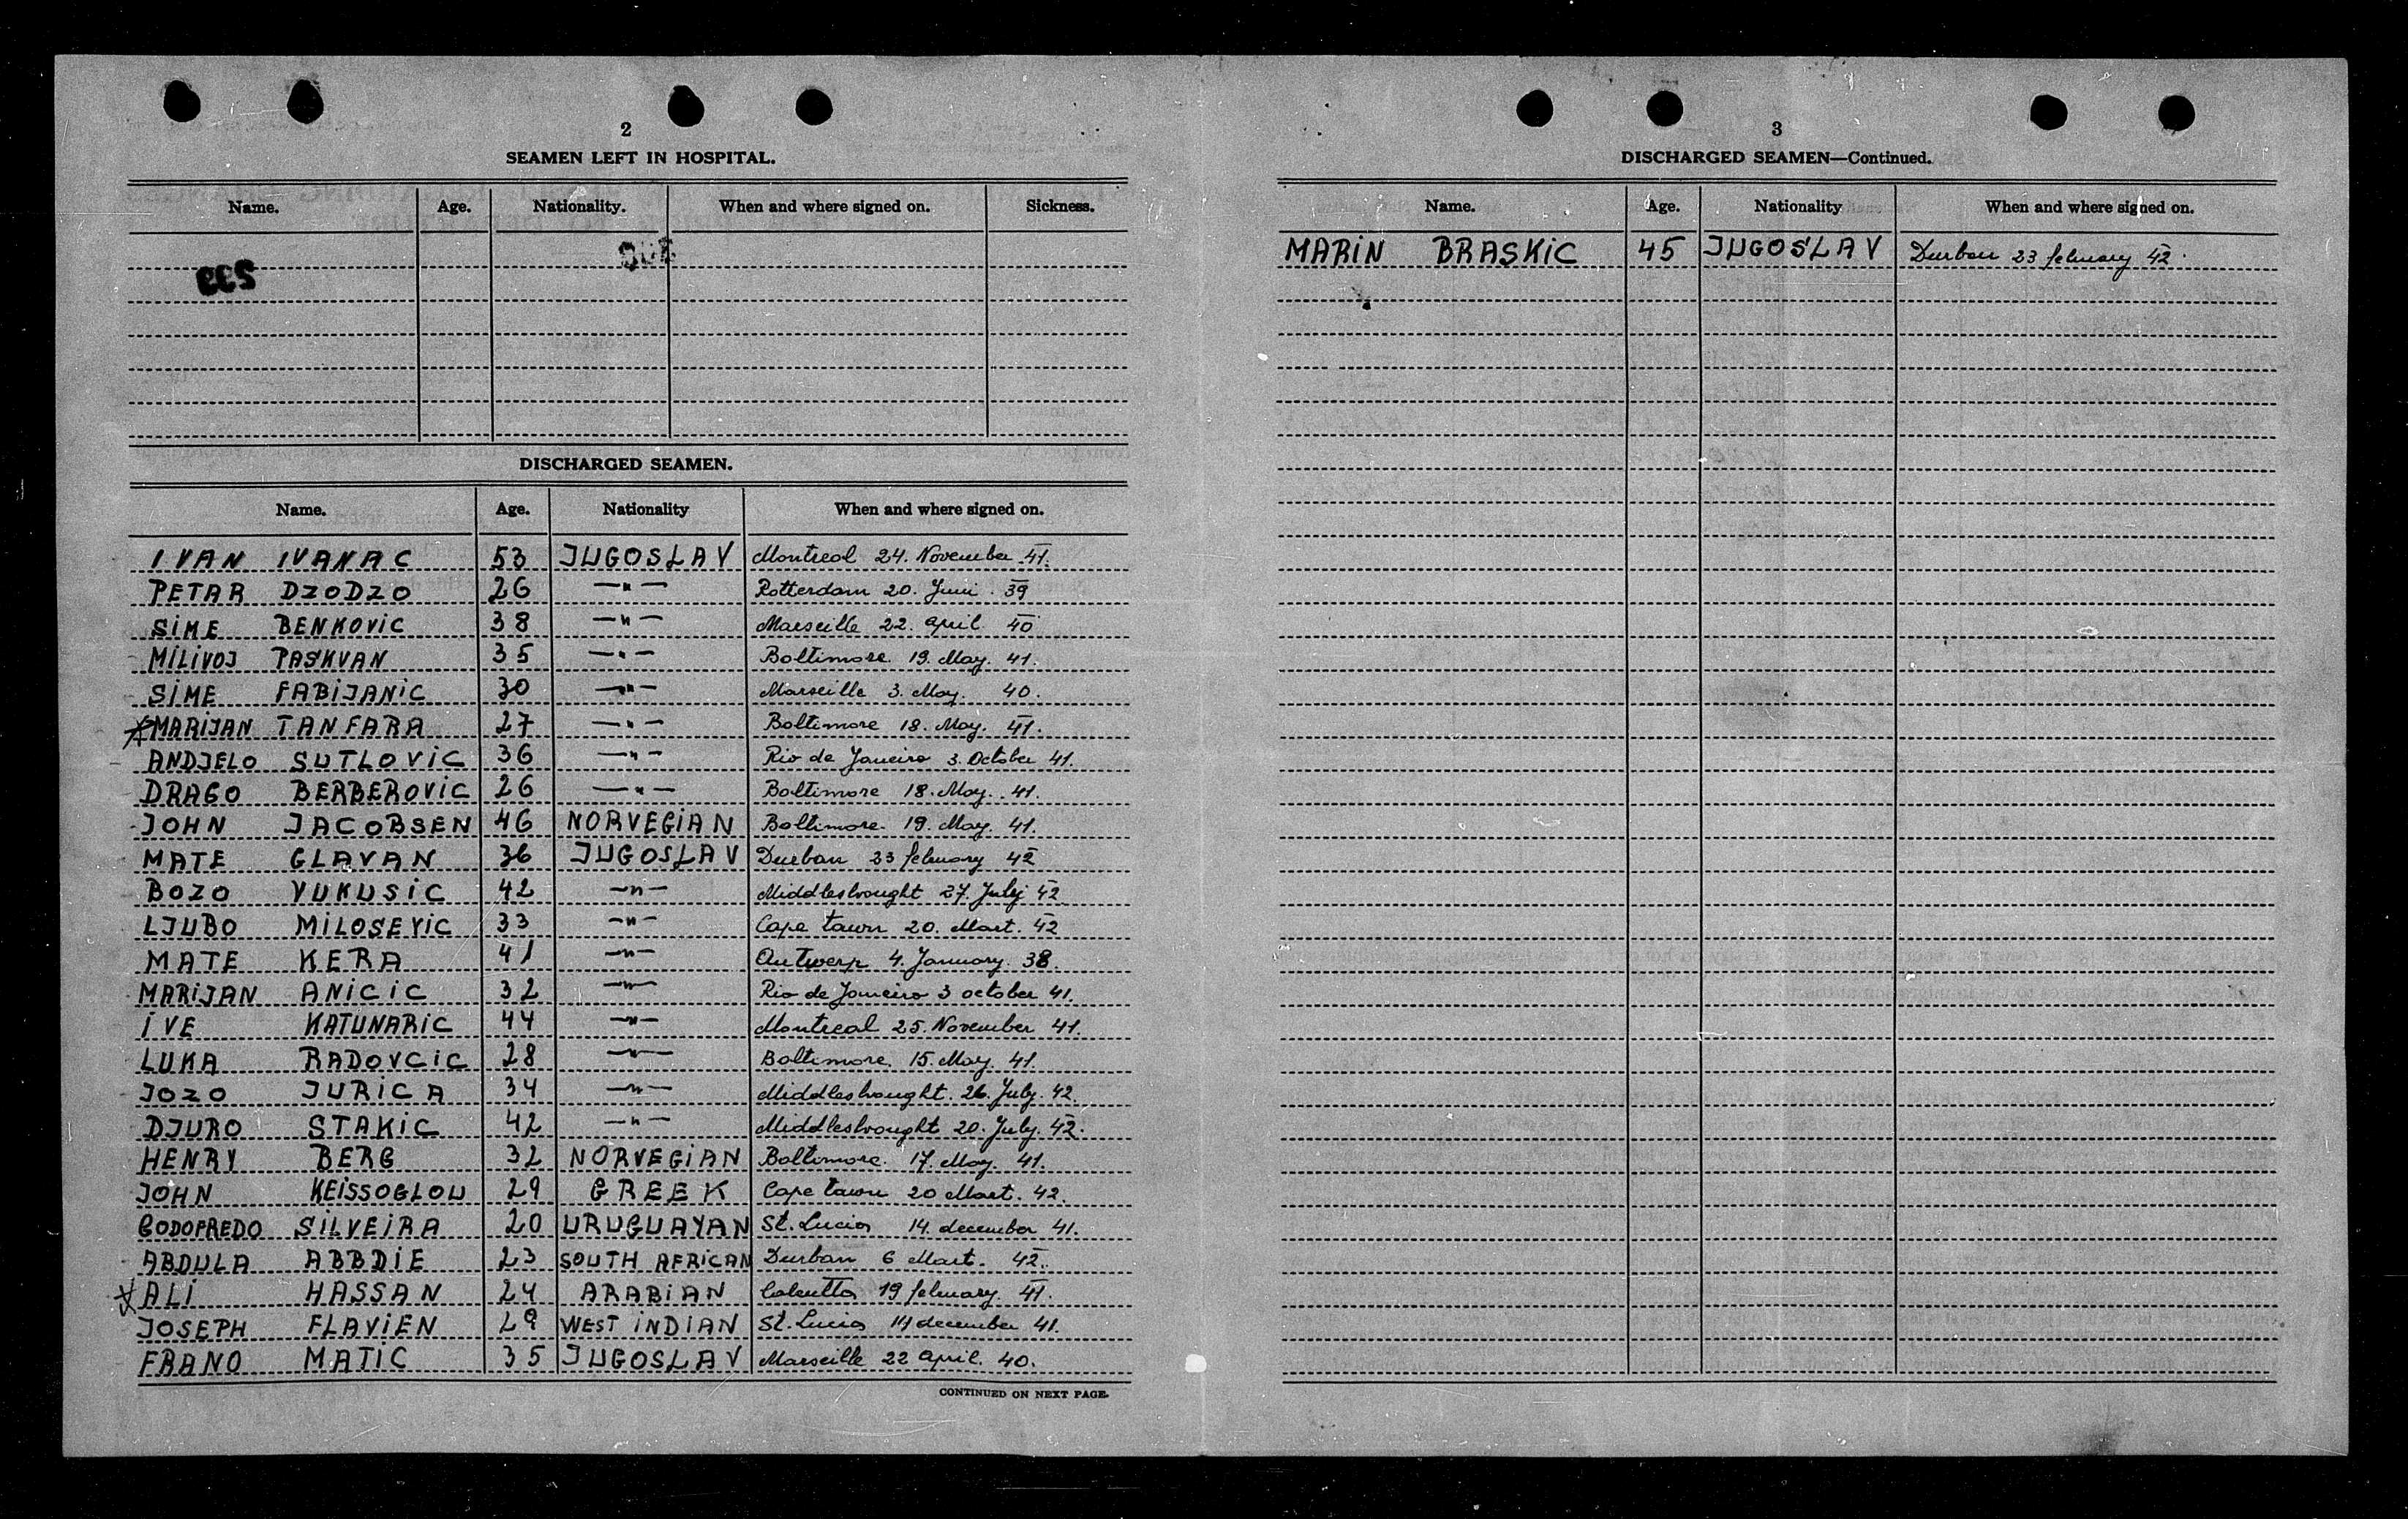 2
SEAMEN LEFT IN HOSPITAL.
Name. Age. Nationality. When and where signed on. Sickness.
DISCHARGED SEAMEN.
Name. Age. Nationality When and where signed on.
IVAN IVANAC 53 JUGOSLAV Montreal 24. November 41.
PETAR DZODZO 26 —"— Rotterdam 20. Juni. 39
SIME BENKOVIC 38 —"— Marseille 22. april 40
MILIVOJ PASKVAN 35 —"— Baltimore 19. May. 41.
SIME FABIJANIC 30 —"— Marseille 3. May. 40.
MARIJAN TANFARA 27 —"— Baltimore 18. May. 41.
ANDJELO SUTLOVIC 36 —"— Rio de Janeiro 3. October 41.
DRAGO BERBEROVIC 26 —"— Baltimore 18. May. 41.
JOHN JACOBSEN 46 NORVEGIAN Baltimore 19. May. 41.
MATE GLAVAN 36 JUGOSLAV Durban 23 february 42
BOZO VUKUSIC 42 —"— Middlesbrought 27. July 42
LJUBO MILOSEVIC 33 —"— Cape tawn 20. Mart. 42
MATE KERA 41 —"— Antwerp 4. January. 38.
MARIJAN ANICIC 32 —"— Rio de Janeiro 3 october 41.
IVE KATUNARIC 44 —"— Montreal 25. November 41.
LUKA RADOVCIC 28 —"— Baltimore. 15. May. 41.
JOZO JURICA 34 —"— Middlesbrought. 26. July. 42.
DJURO STAKIC 42 —"— Middlesbrought 20. July. 42.
HENRY BERG 32 NORVEGIAN Baltimore. 17. May. 41.
JOHN KEISSOGLOU 29 GREEK Cape tawn 20 Mart. 42.
GODOFREDO SILVEIRA 20 URUGUAYAN St. Lucia 14. december 41.
ABDULA ABBDIE 23 SOUTH AFRICAN Durban 6 Mart. 42.
ALI HASSAN 24 ARABIAN Calcutta 19 february. 41.
JOSEPH FLAVIEN 29 WEST INDIAN St. Lucia 14 december 41.
FRANO MATIC 35 JUGOSLAV Marseille 22 april. 40.
CONTINUED ON NEXT PAGE.
3
DISCHARGED SEAMEN—Continued.
Name. Age. Nationality When and where signed on.
MARIN BRASKIC 45 JUGOSLAV Durban 23 february 42.